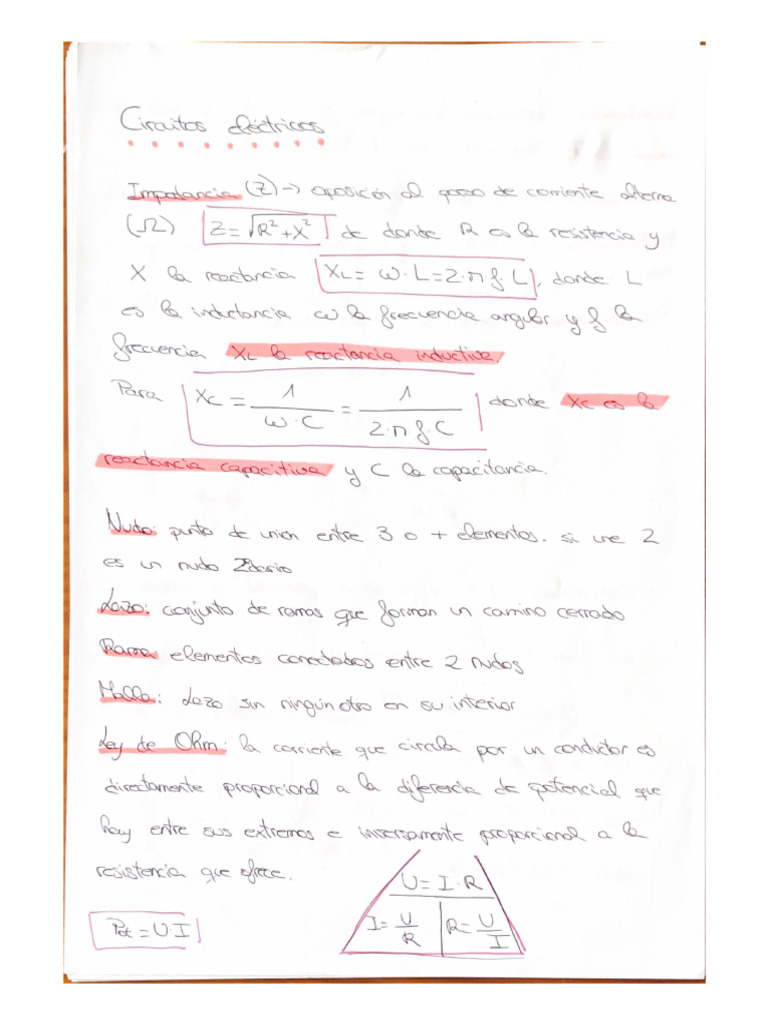 Circuitos eléctricos
Impedancia (Z) → oposición al paso de corriente alterna
(Ω) Z = √R² + X² de donde R es la resistencia y
X la reactancia XL = ω · L = 2·π f · L, donde L
es la inductancia ω la frecuencia angular y f la
frecuencia XL la reactancia inductiva.
Para XC = 1 / ω · C = 1 / 2·π f · C donde XC es la
reactancia capacitiva y C la capacitancia.
Nudo: punto de union entre 3 o + elementos. si une 2
es un nudo 2dario
Lazo: conjunto de ramas que forman un camino cerrado
Rama elementos conectados entre 2 nudos
Malla: Lazo sin ningún otro en su interior
Ley de Ohm: la corriente que circula por un conductor es
directamente proporcional a la diferencia de potencial que
hay entre sus extremos e inversamente proporcional a la
resistencia que ofrece.
U = I · R
Pot = U·I I = U / R R = U / I